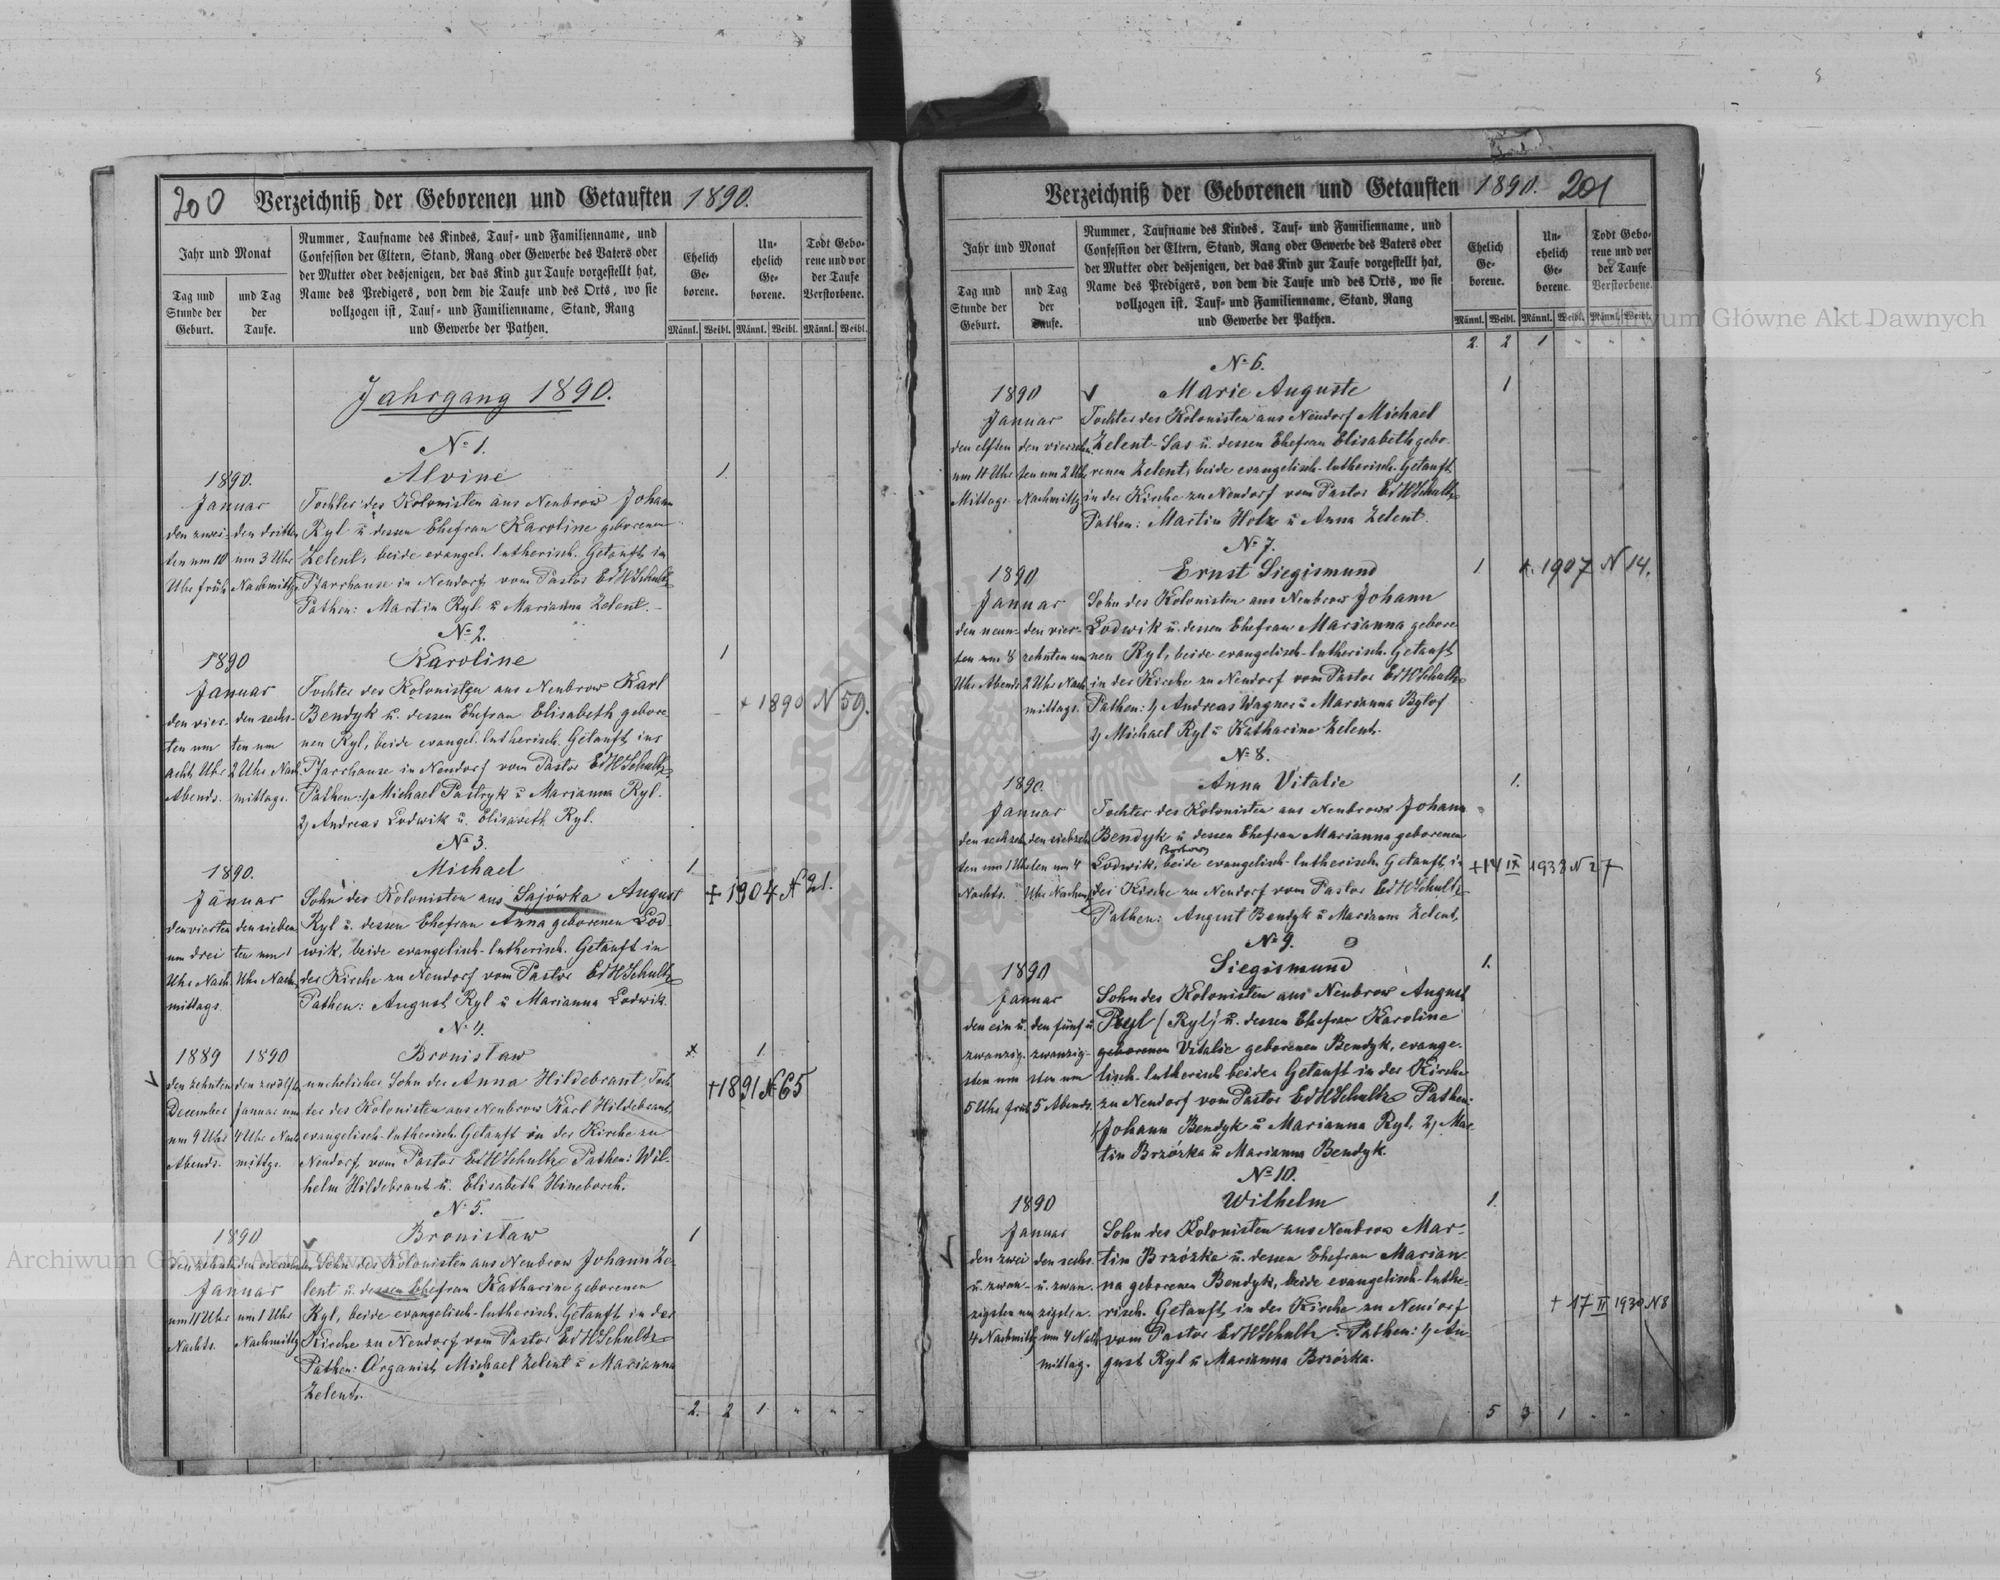 200 Verzeichniß der Geborenen und Getauften 1890.
Jahr und Monat
Tag und Stunde der Geburt.
und Tag der Taufe.
Nummer, Taufname des Kindes, Tauf- und Familienname, und
Confession der Eltern, Stand, Rang oder Gewerbe des Vaters oder
der Mutter oder desjenigen, der das Kind zur Taufe vorgestellt hat,
Name des Predigers, von dem die Taufe und des Orts, wo sie
vollzogen ist, Tauf- und Familienname, Stand, Rang
und Gewerbe der Pathen.
Ehelich Ge- borene.
Un- ehelich Ge- borene.
Todt Gebo- rene und vor der Taufe Verstorbene.
Männl. Weibl. Männl. Weibl. Männl. Weibl.
Jahrgang 1890.
No 1.
1890.
Januar
den zwei-
ten um 10
Uhr früh
den dritten
um 3 Uhr
Nachmittgs.
Alvine
1
Tochter des Kolonisten aus Neubrow Johann
Ryl u dessen Ehefrau Karoline geborenen
Zelent, beide evangel. lutherisch. Getauft im
Pfarrhause in Neudorf vom Pastor EdWSchultz
Pathen: Martin Ryl u Marianna Zelent.
No 2.
1890
Januar
den vier-
ten um
acht Uhr
Abends.
den sechs-
ten um
2 Uhr Nach
mittags.
Karoline
1
Tochter des Kolonisten aus Neubrow Karl
Bendyk u. dessen Ehefrau Elisabeth gebore
nen Ryl, beide evangel. lutherisch. Getauft im
Pfarrhause in Neudorf vom Pastor EdWSchultz
Pathen: 1, Michael Pastryk u Marianna Ryl.
2, Andreas Lodwik u. Elisabeth Ryl.
+ 1890 N 59.
No 3.
1890.
Januar
den vierten
um drei
Uhr Nach
mittags.
den sieben
ten um 1
Uhr Nachm
Michael
1
Sohn des Kolonisten aus Sajówka August
Ryl u. dessen Ehefrau Anna geborenen Lod-
wik, beide evangelisch-lutherisch. Getauft in
der Kirche zu Neudorf vom Pastor EdWSchultz
Pathen: August Ryl u Marianna Lodwik.
+ 1904 N 21.
No 4.
1889
den zehnten
December
um 9 Uhr
Abends.
1890
den zwölft.
Januar um
4 Uhr Nach
mittgs.
Bronisław
x 1.
unehelicher Sohn der Anna Hildebrant, Toch
ter des Kolonisten aus Neubrow Karl Hildebrant,
evangelisch-lutherisch. Getauft in der Kirche zu
Neudorf vom Pastor EdWSchultz Pathen: Wil-
helm Hildebrant u. Elisabeth Hineborch.
+1891 N 65
No 5.
1890
den zehnten
Januar
um 11 Uhr
Nachts.
um 1 Uhr
Nachmittg
Bronisław
1
Sohn des Kolonisten aus Neubrow Johann Ze-
lent u. dessen Ehefrau Katharine geborenen
Ryl, beide evangelisch-lutherisch. Getauft in der
Kirche zu Neudorf vom Pastor EdWSchultz
Pathen: Organist Michael Zelent u Marianna
Zelent.
2. 2 1 " " "
Verzeichniß der Geborenen und Getauften 1890. 201
Jahr und Monat
Tag und Stunde der Geburt.
und Tag der Taufe.
Nummer, Taufname des Kindes, Tauf- und Familienname, und
Confession der Eltern, Stand, Rang oder Gewerbe des Vaters oder
der Mutter oder desjenigen, der das Kind zur Taufe vorgestellt hat,
Name des Predigers, von dem die Taufe und des Orts, wo sie
vollzogen ist, Tauf- und Familienname, Stand, Rang
und Gewerbe der Pathen.
Ehelich Ge- borene.
Un- ehelich Ge- borene.
Todt Gebo- rene und vor der Taufe Verstorbene.
Männl. Weibl. Männl. Weibl. Männl. Weibl.
2. 2 1 " " "
No 6.
1890
Januar
den elften
um 11 Uhr
Mittags
den vierzehn
ten um 2 Uhr
Nachmittg
Marie Auguste
1
Tochter des Kolonisten aus Neudorf Michael
Zelent-Sas u. dessen Ehefrau Elisabeth gebo-
renen Zelent, beide evangelisch-lutherisch. Getauft
in der Kirche zu Neudorf vom Pastor EdWSchultz
Pathen: Martin Holz u Anna Zelent.
No 7.
1890
Januar
den neun-
ten um 8
Uhr Abends
den vier-
zehnten um
2 Uhr Nach
mittags.
Ernst Siegismund
1
+ 1907 N 14.
Sohn des Kolonisten aus Neubrow Johann
Lodwik u. dessen Ehefrau Marianna gebore
nen Ryl, beide evangelisch-lutherisch. Getauft
in der Kirche zu Neudorf vom Pastor EdWSchultz
Pathen: 1, Andreas Wagner u Marianna Bytof
2, Michael Ryl u Katharine Zelent.
No 8.
1890.
Januar
den sechzehn
ten um 1 Uhr
Nachts.
den siebzehn
ten um 4
Uhr Nachm
Anna Vitalie
1.
Tochter des Kolonisten aus Neubrow Johann
Bendyk u dessen Ehefrau Marianna geborenen
Lodwik, beide evangelisch-lutherisch. Getauft in
der Kirche zu Neudorf vom Pastor EdWSchultz
Pathen: August Bendyk u Marianna Zelent.
+ 14 IX 1938 N 27
No 9.
1890
Januar
den ein u.
zwanzig-
sten um
5 Uhr früh
den fünf u
zwanzig-
sten um
5 Abends.
Siegismund
1.
Sohn des Kolonisten aus Neubrow August
Reyl (Ryl) u. dessen Ehefrau Karoline
geborenen Vitalie geborenen Bendyk, evange-
lisch-lutherisch beide. Getauft in der Kirche
zu Neudorf vom Pastor EdWSchultz Pathen:
1, Johann Bendyk u Marianna Ryl, 2, Mar-
tin Brzózka u Marianna Bendyk.
No 10.
1890
Januar
den zwei
u. zwan-
zigsten um
4 Nachmittg
den sechs.
u. zwan.
zigsten.
um 4 Nach
mittag.
Wilhelm
1.
Sohn des Kolonisten aus Neubrow Mar-
tin Brzózka u. dessen Ehefrau Marian
na geborenen Bendyk, beide evangelisch-luthe-
risch. Getauft in der Kirche zu Neudorf
vom Pastor EdWSchultz. Pathen: 1, Au-
gust Ryl u Marianna Brzózka.
+ 17 II 1930 N 8
5 3 1 " " "
Archiwum Główne Akt Dawnych
Archiwum Główne Akt Dawnych